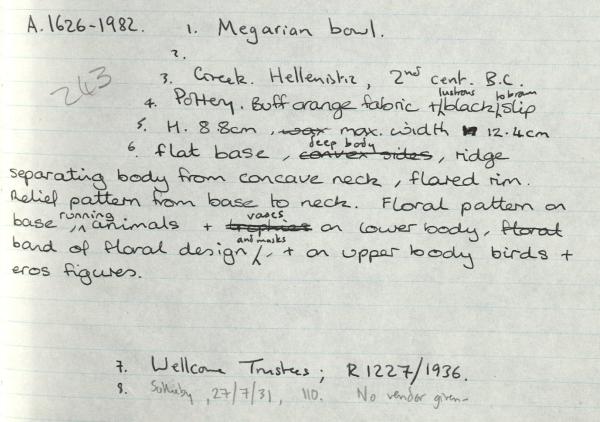 A.1626-1982. 1. Megarian bowl.
2.
243
3. Greek. Hellenistic, 2nd cent. B.C.
4. Pottery. Buff orange fabric + lustrous black to brown slip
5. H. 8.8cm, wax max. width 12.4cm
6. flat base, convex sides deep body, ridge
separating body from concave neck, flared rim.
Relief pattern from base to neck. Floral pattern on
base, running animals + trophies vases on lower body, floral
band of floral design and masks, + on upper body birds +
eros figures.
7. Wellcome Trustees; R1227/1936.
8. Sotheby, 27/7/31, 110. No vendor given-